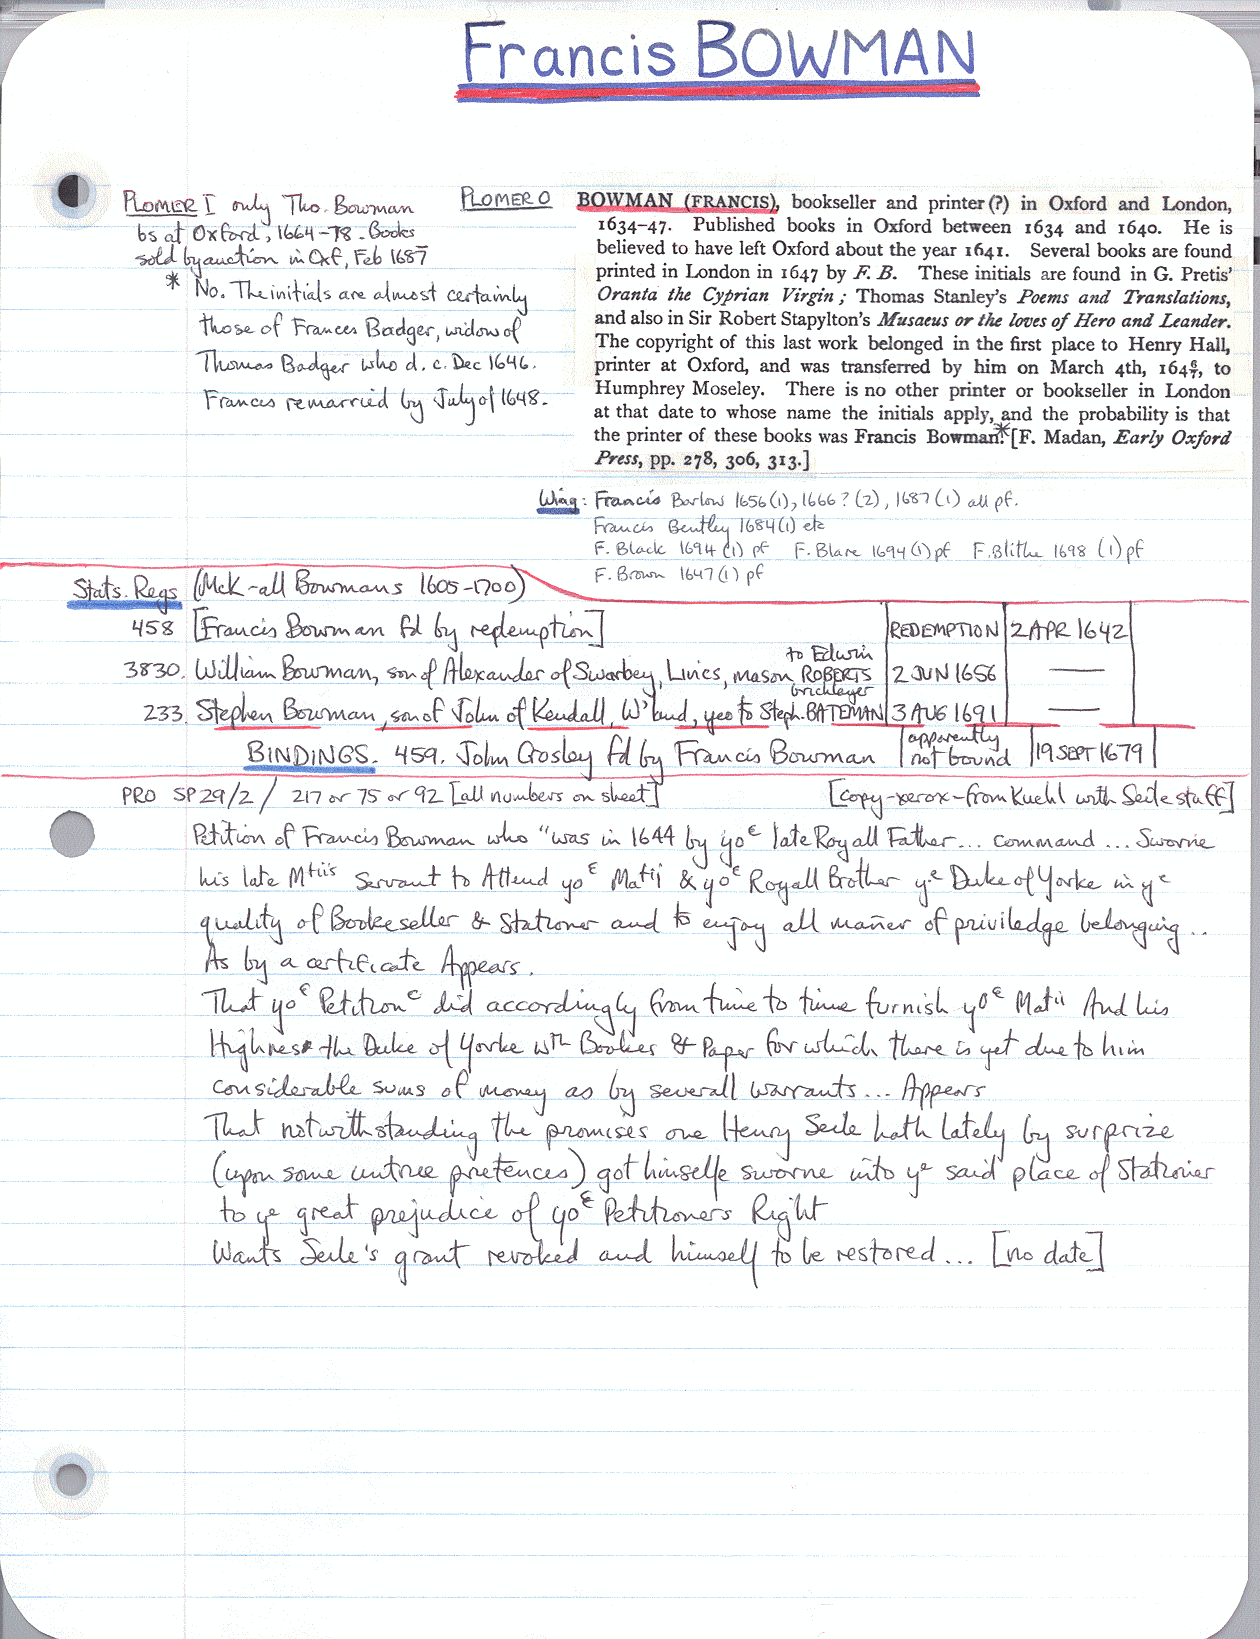 Francis BOWMAN
PLOMER I only Tho. Bowman
bs at Oxford, 1664–78 - Books
sold by auction in Oxf, Feb 1687
* No. The initials are almost certainly
those of Frances Badger, widow of
Thomas Badger who d. c. Dec 1646.
Frances remarried by July of 1648.
PLOMER O
BOWMAN (FRANCIS), bookseller and printer (?) in Oxford and London,
1634–47. Published books in Oxford between 1634 and 1640. He is
believed to have left Oxford about the year 1641. Several books are found
printed in London in 1647 by F. B. These initials are found in G. Pretis'
Oranta the Cyprian Virgin; Thomas Stanley's Poems and Translations,
and also in Sir Robert Stapylton's Musaeus or the loves of Hero and Leander.
The copyright of this last work belonged in the first place to Henry Hall,
printer at Oxford, and was transferred by him on March 4th, 164 6/7, to
Humphrey Moseley. There is no other printer or bookseller in London
at that date to whose name the initials apply, and the probability is that
the printer of these books was Francis Bowman.* [F. Madan, Early Oxford
Press, pp. 278, 306, 313.]
Wing: Francis Barlow 1656 (1), 1666? (2), 1687 (1) all pf.
Francis Bentley 1684 (1) etc
F. Black 1694 (1) pf F. Blare 1694 (1) pf F. Blithe 1698 (1) pf
F. Brown 1647 (1) pf
Stats. Regs (McK - all Bowmans 1605-1700)
458 [Francis Bowman fd by redemption] REDEMPTION 2 APR 1642
3830. William Bowman, son of Alexander of Swarbey, Lincs, mason to Edwin ROBERTS bricklayer 2 JUN 1656 —
233. Stephen Bowman, son of John of Kendall, W'land, yeo to Steph. BATEMAN 3 AUG 1691 —
BINDINGS. 459. John Crosley fd by Francis Bowman apparently not bound 19 SEPT 1679
PRO SP 29/2/ 217 or 75 or 92 [all numbers on sheet] [copy-xerox-from Kuehl with Seile stuff]
Petition of Francis Bowman who "was in 1644 by yoᵉ late Royall Father... command... Sworne
his late Mtiis Servant to Attend yoᵉ Matii & yoᵉ Royall Brother yᵉ Duke of Yorke in yᵉ
quality of Bookeseller & Stationer and to enjoy all mañer of priviledge belonging...
As by a certificate Appears.
That yoᵉ Petitionᵉ did accordingly from time to time furnish yoᵉ Matii And his
Highness the Duke of Yorke wth Bookes & Paper for which there is yet due to him
considerable sums of money as by severall warrants... Appears
That notwithstanding the promises one Henry Seile hath lately by surprize
(upon some untrue pretences) got himselfe sworne into yᵉ said place of Stationer
to yᵉ great prejudice of yoᵉ Petitioners Right
Wants Seile's grant revoked and himself to be restored... [no date]